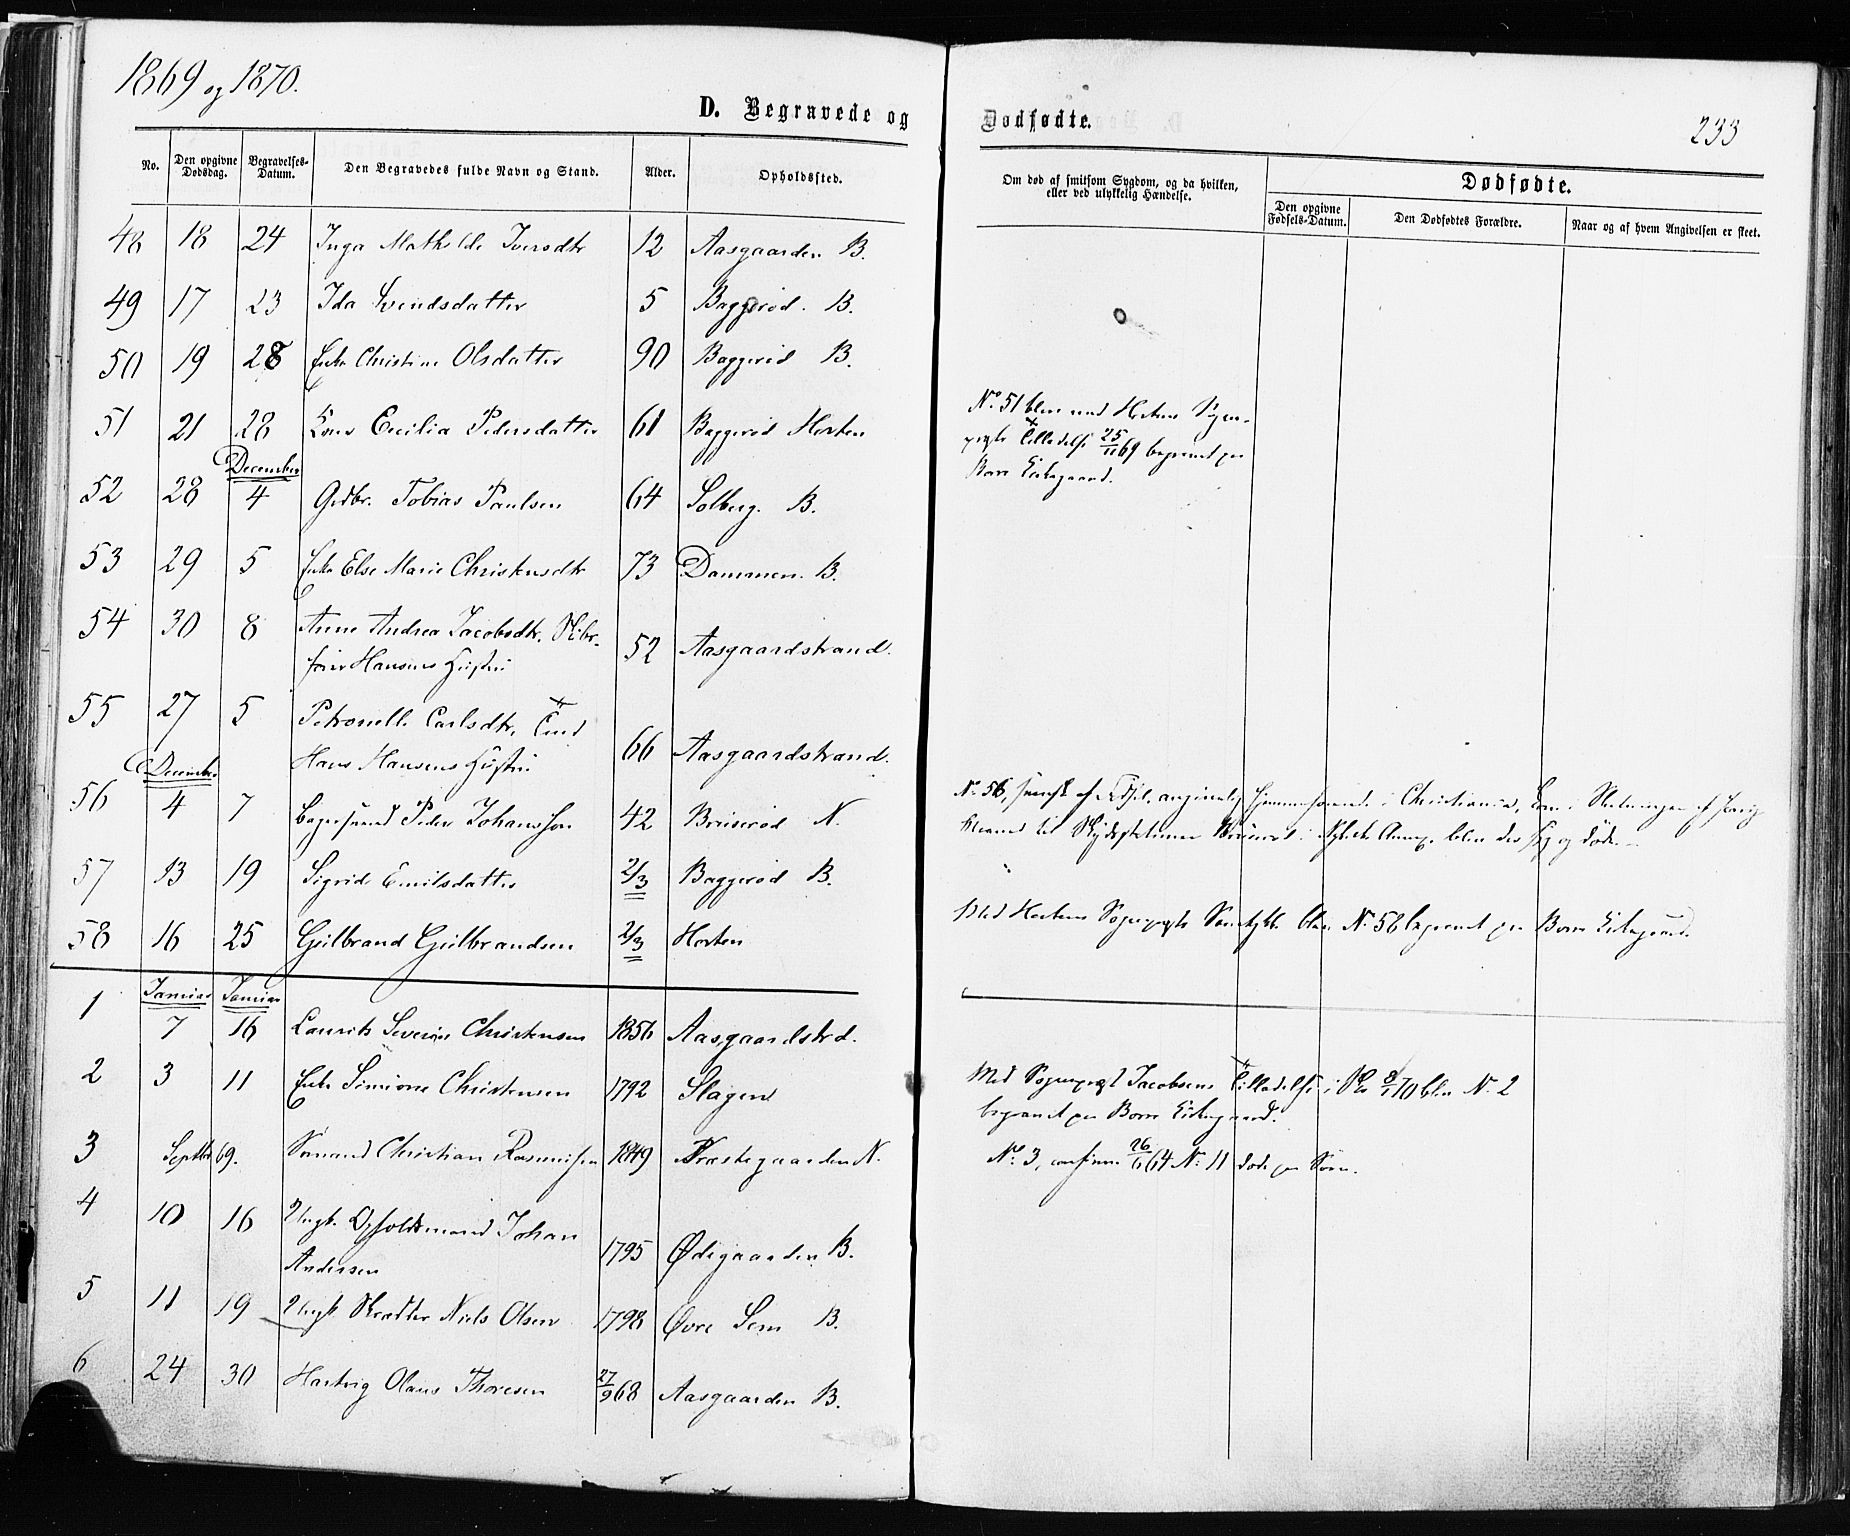 1869 og 1870.
D. Begravede og Dødfødte.
233
No.
Den opgivne Dødsdag.
Begravelses-Datum.
Den Begravedes fulde Navn og Stand.
Alder.
Opholdssted.
Om død af smitsom Sygdom, og da hvilken, eller ved ulykkelig Hændelse.
Dødfødte.
Den opgivne Fødsels-Datum.
Den Dødfødtes Forældre.
Naar og af hvem Angivelsen er skeet.
48 18 24 Inga Mathilde Iversdtr 12 Aasgaarden B.
49 17 23 Ida Svendsdatter 5 Baggerød. B.
50 19 28 Enke Christine Olsdatter 90 Baggerød B.
51 21 28 Kone Cecilia Pedersdatter 61 Baggerød Horten
No. 51 blev med Hortens Sogne-
præsts Tilladelse 25/11 69 begravet paa
Borre Kirkegaard.
December
52 28 4 Grdbr. Tobias Paulsen 64 Solberg. B.
53 29 5 Enke Else Marie Christensdtr 73 Dammen. B.
54 30 8 Anne Andrea Jacobsdtr. Skibs-
fører Hansens Hustru 52 Aasgaardstrand.
55 27 5 Petronelle Carlsdtr.
Hans Hansens Hustru 66 Aasgaardstrand.
December
56 4 7 Peder Johansson 42 Bruserød N.
No. 56, af Fødsel, i Christiania, kom i
til Skydsstationen i blev der syg og døde.
57 13 19 Sigrid Emilsdatter 2/3 Baggerød B.
58 16 25 Gulbrand Gulbrandsen 2/3 Horten
Med Hortens Sognepræsts Samtykke blev No. 58 begravet paa Borre Kirkegaard.
Januar Januar
1 7 16 Laurits Severin Christensen 1856 Aasgaardstrd.
2 3 11 Enke Simione Christensen 1792 Slagen
Med Sognepræst Jacobsens Tilladelse i Skr 8/1 70 blev No. 2
begravet paa Borre Kirkegaard.
3 Septbr 69. Sømand Christian Rasmussen 1849 Præstegaarden N.
No. 3, confirm. 26/6 64 No. 11 døde paa Søen.
4 10 16 Ungk. Opholdsmand Johan
Andersen 1795 Ødegaarden B.
5 11 19 Ungk. Skrædder Niels Olsen 1798 Øvre Sem B.
6 24 30 Hartvig Olaus Thoresen 27/9 68 Aasgaarden B.